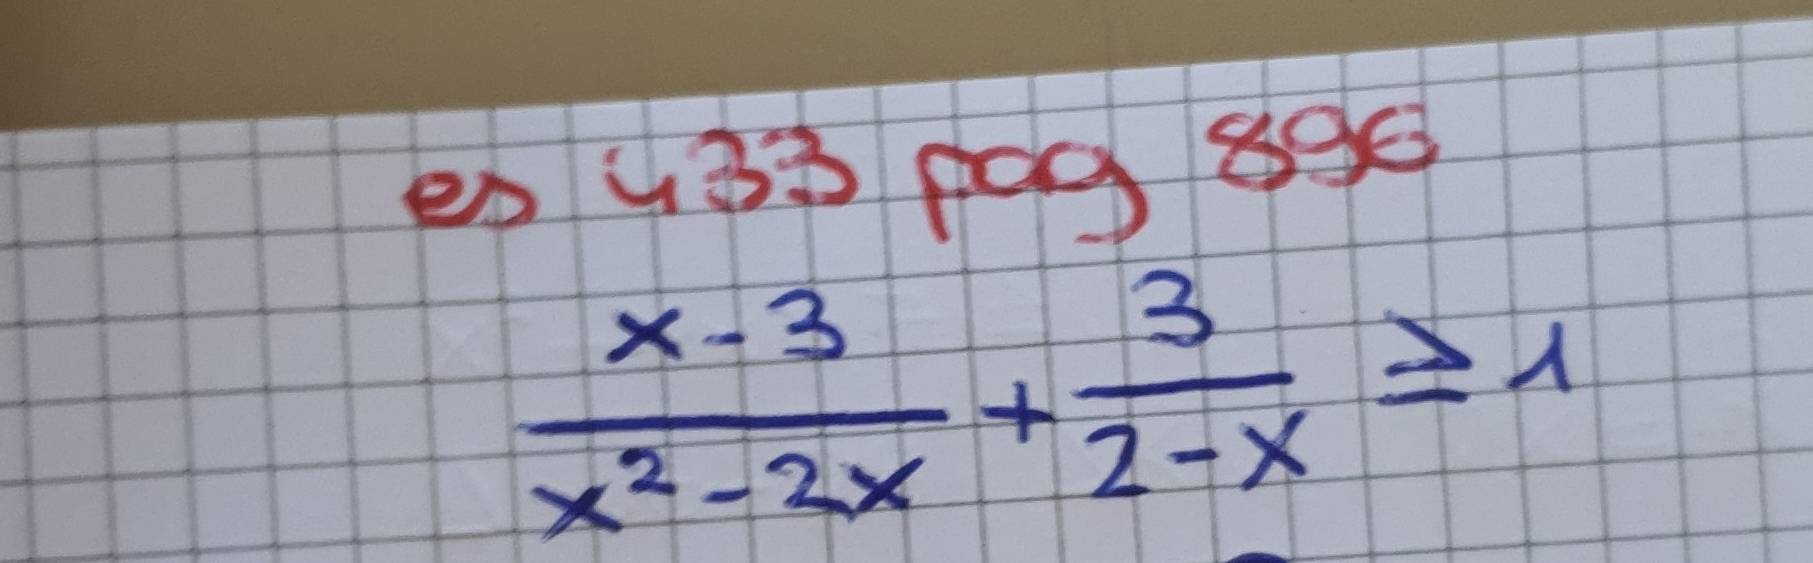 es 433 pag 896
x-3/x²-2x + 3/2-x ≥ 1